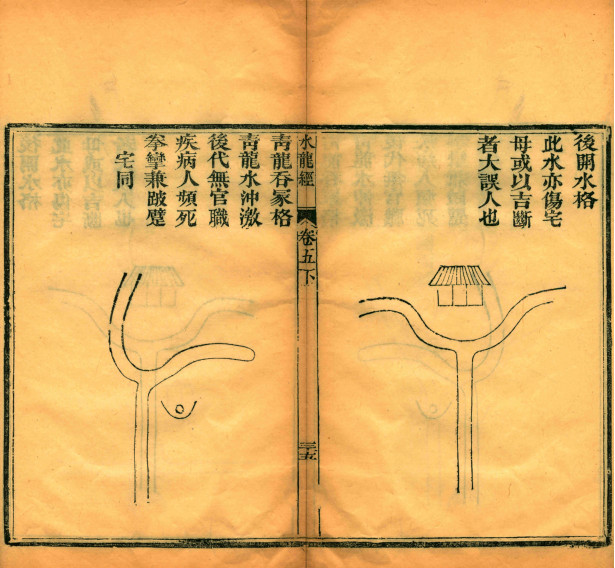 後開水格
此水亦傷宅
母或以吉斷
者大誤人也
水龍經
卷五下
三五
青龍吞冢格
青龍水沖激
後代無官職
疾病人頻死
拳攣兼跛躄
宅同